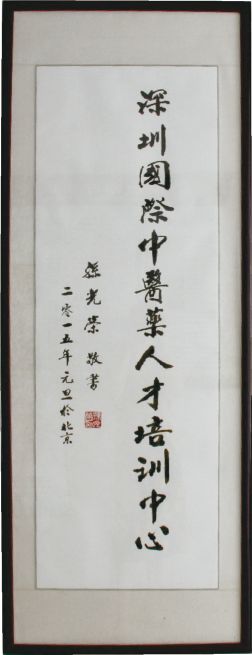 深圳國際中醫藥人才培訓中心
孫光榮敬書
二零一五年元旦於北京